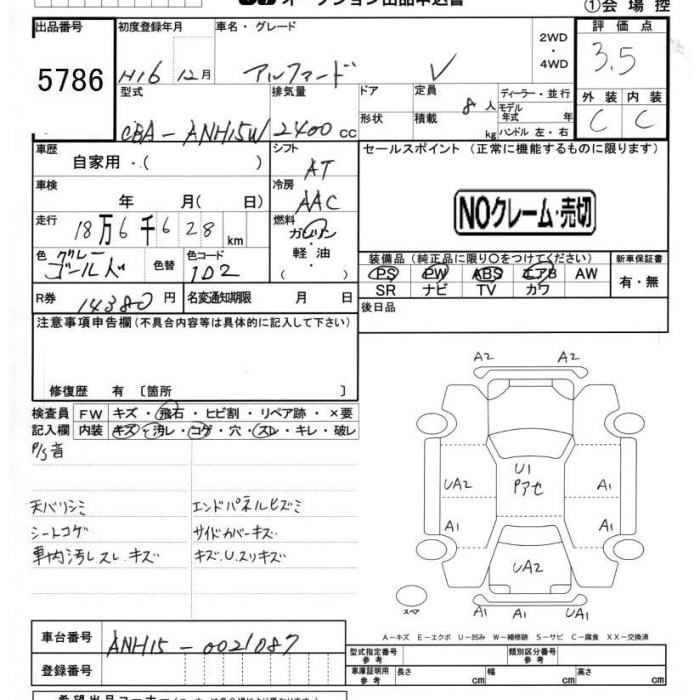 オークション出品申込書
①会場控
出品番号 初度登録年月 車名・グレード 2WD・4WD 評価点
5786 H16 12月 アルファード V 3.5
型式 排気量 ドア 定員 8人 ディーラー・並行 外装 内装
CBA-ANH15W 2400 cc 形状 積載 kg モデル年式 年式 C C
ハンドル 左・右
車歴 自家用・( ) シフト AT セールスポイント (正常に機能するものに限ります)
車検 年 月(日) 冷房 AAC NOクレーム・売切
走行 18万6千628km 燃料 ガソリン・軽油・( )
色 色替 色コード 1D2 装備品 (純正品に限り○をつけてください) 新車保証書
PS PW ABS エアB AW 有・無
SR ナビ TV カワ
R券 14380円 名変通知期限 月 日 後日品
注意事項申告欄(不具合内容等は具体的に記入して下さい)
修復歴 有 〔箇所 〕
検査員 FW キズ・飛石・ヒビ割・リペア跡・×要
記入欄 内装 キズ・汚レ・コゲ・穴・スレ・キレ・破レ
P/S音
天バリシミ エンドパネルヒズミ
シートコゲ サイドカバーキズ
車内汚レスレキズ キズ.U.スリキズ
A2 A2
UA2 U1 A1
Pアセ
A1 A1
UA2
スペア A1 A1 UA1
A-キズ E-エクボ U-凹み W-補修跡 S-サビ C-腐食 XX-交換済
車台番号 ANH15-0021087 型式指定番号 参考 類別区分番号 参考
登録番号 車庫証明用 参考 長さ cm 幅 cm 高さ cm
希望出品コーナー